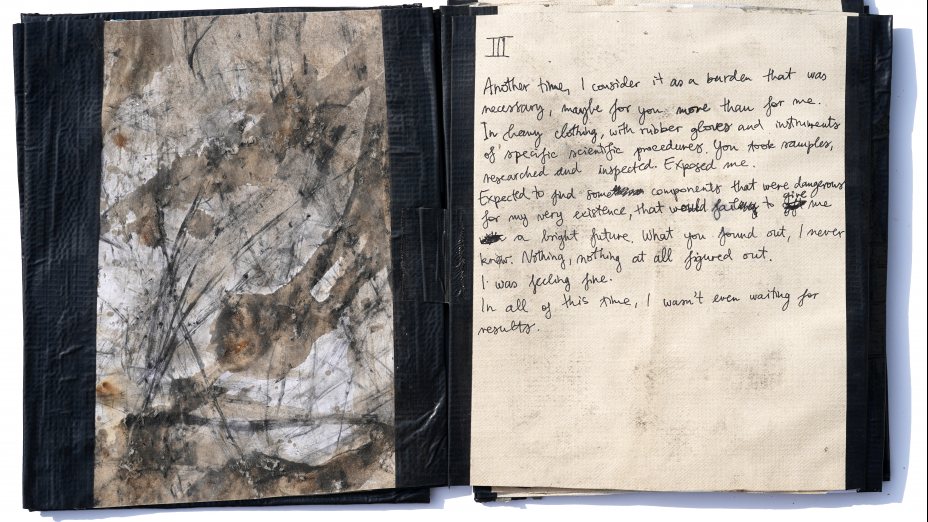 III
Another time, I consider it as a burden that was
necessary, maybe for you more than for me.
In heavy clothing, with rubber gloves and instruments
of specific scientific procedures. You took samples,
researched and inspected. Exposed me.
Expected to find some components that were dangerous
for my very existence that would to give me
a bright future. What you found out, I never
know. Nothing, nothing at all figured out.
I was feeling fine.
In all of this time, I wasn't even waiting for
results.